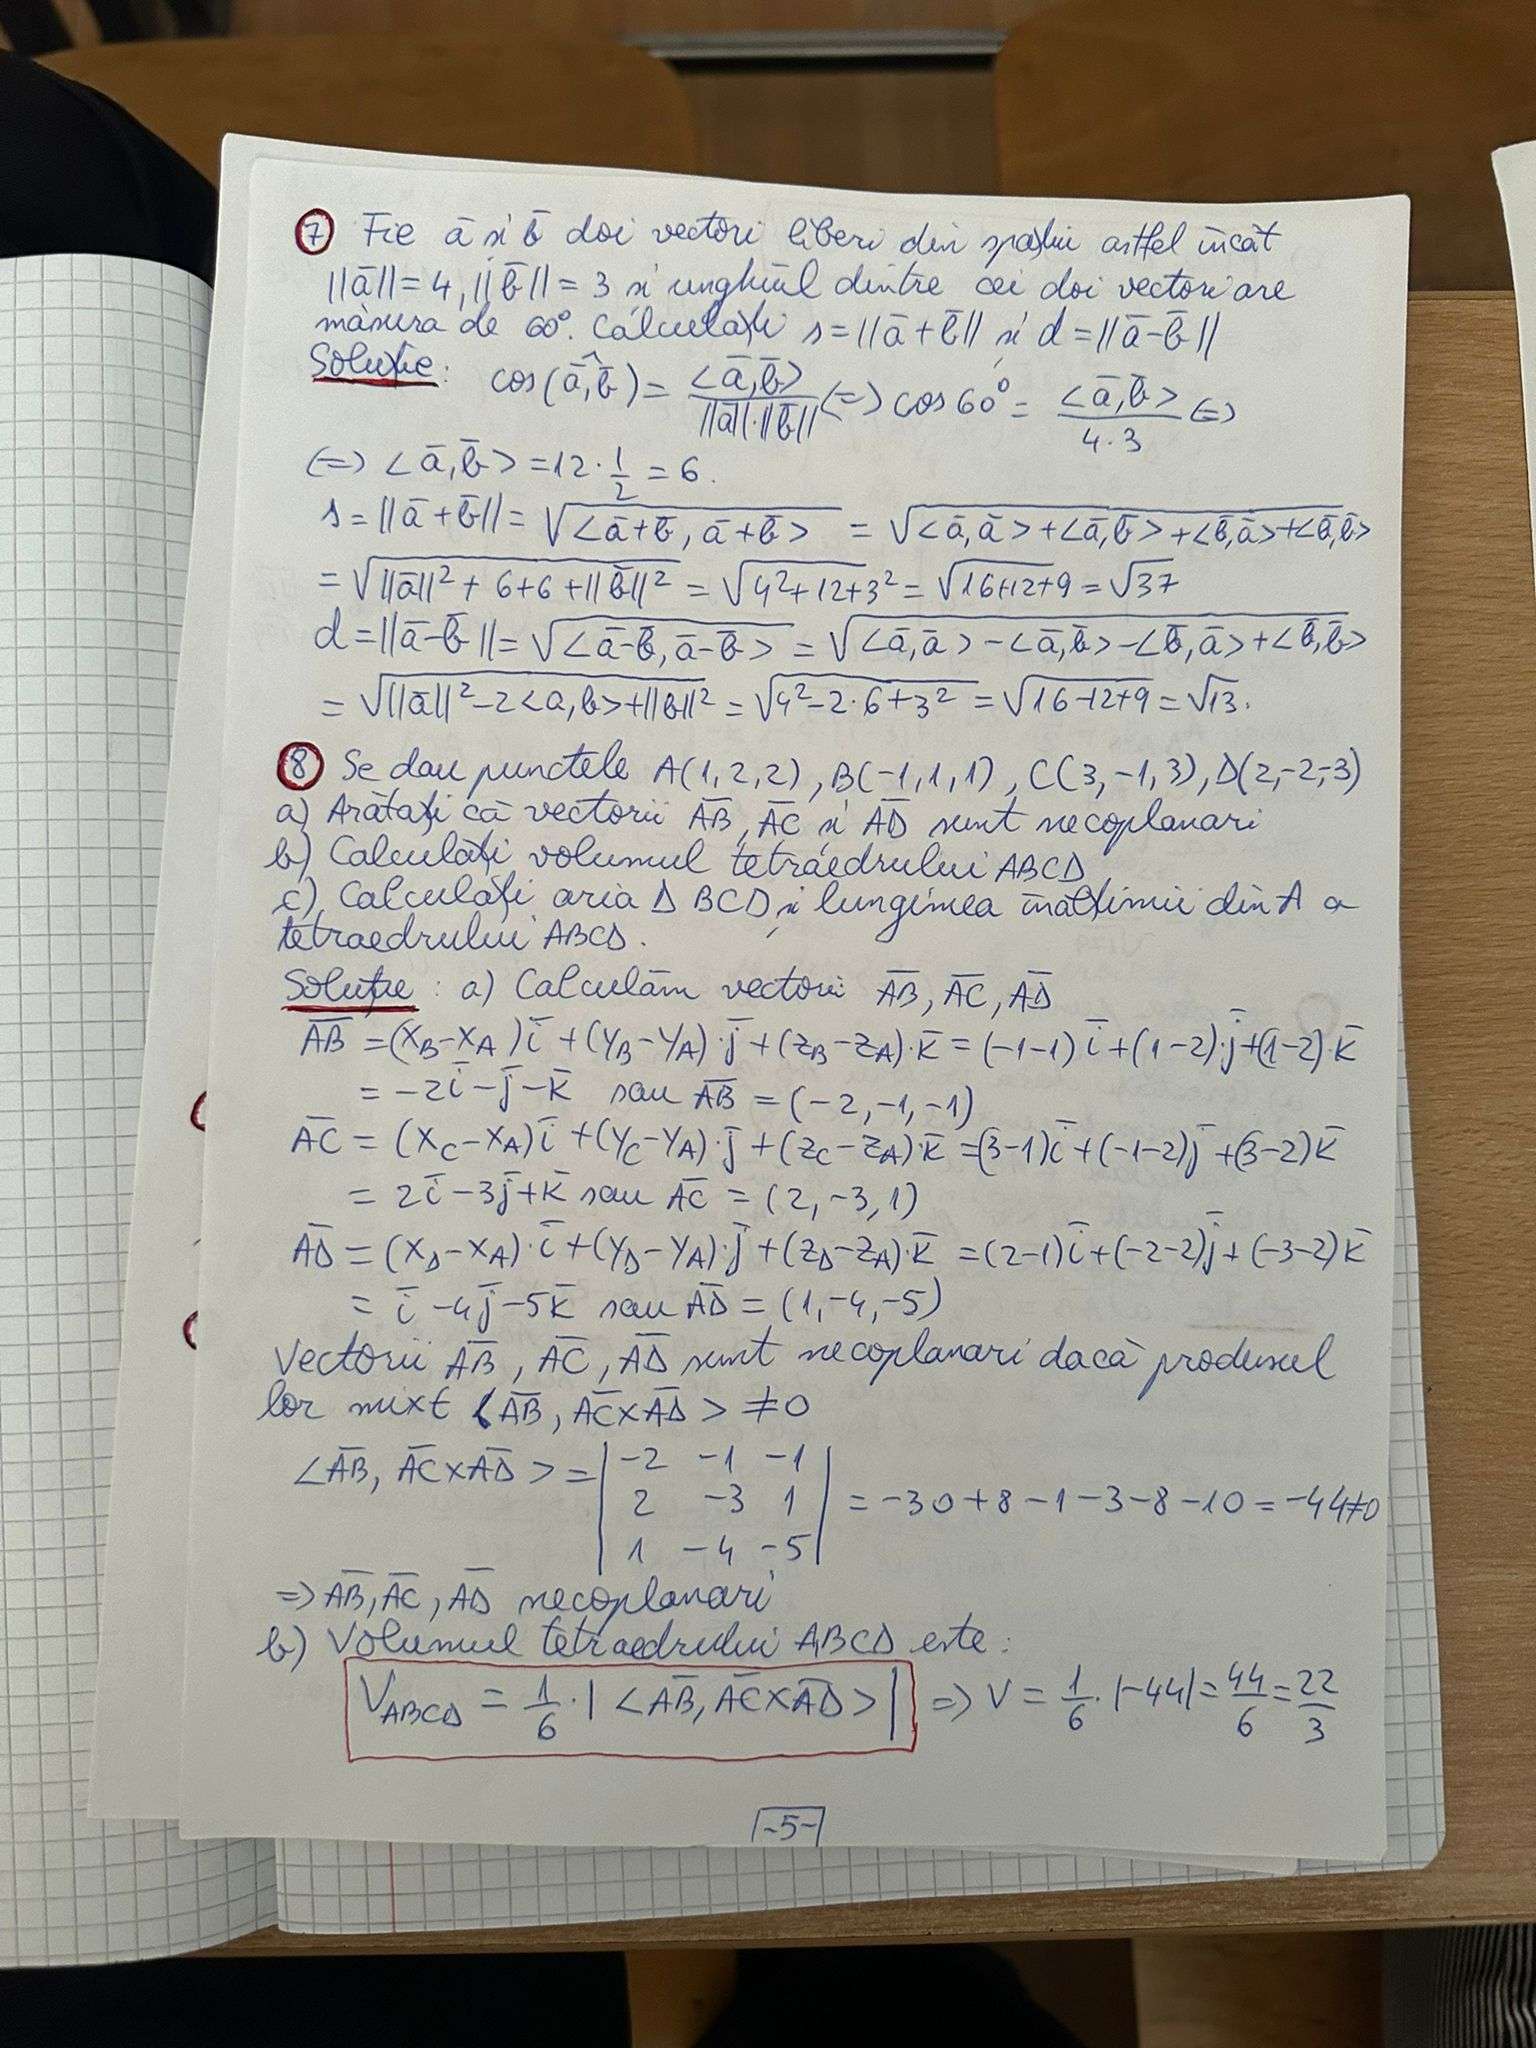 7 Fie ā și b̄ doi vectori liberi din spațiu astfel încât
||ā||=4, ||b̄||=3 și unghiul dintre cei doi vectori are
măsura de 60°. Calculați s=||ā+b̄|| și d=||ā-b̄||
Soluție: cos(ā,b̄)= <ā,b̄>/(||ā||·||b̄||) (=) cos60°= <ā,b̄>/(4·3) (=)
(=) <ā,b̄> =12·1/2=6.
s=||ā+b̄||=√(<ā+b̄, ā+b̄>) = √(<ā,ā>+<ā,b̄>+<b̄,ā>+<b̄,b̄>)
=√(||ā||²+6+6+||b̄||²) = √(4²+12+3²)=√(16+12+9)=√37
d=||ā-b̄||=√(<ā-b̄,ā-b̄>) =√(<ā,ā>-<ā,b̄>-<b̄,ā>+<b̄,b̄>)
=√(||ā||²-2<a,b>+||b||²) =√(4²-2·6+3²) =√(16-12+9)=√13.
8 Se dau punctele A(1,2,2), B(-1,1,1), C(3,-1,3), D(2,-2,-3)
a) Arătați că vectorii A̅B̅, A̅C̅ și A̅D̅ sunt necoplanari
b) Calculați volumul tetraedrului ABCD
c) Calculați aria Δ BCD și lungimea înălțimii din A a
tetraedrului ABCD.
Soluție: a) Calculăm vectorii A̅B̅, A̅C̅, A̅D̅
A̅B̅ =(xB-xA)ī+(yB-yA)·j̄+(zB-zA)·k̄=(-1-1)ī+(1-2)·j̄+(1-2)·k̄
= -2ī-j̄-k̄ sau A̅B̅ = (-2,-1,-1)
A̅C̅ = (xC-xA)ī+(yC-yA)·j̄+(zC-zA)·k̄=(3-1)ī+(-1-2)j̄+(3-2)k̄
= 2ī-3j̄+k̄ sau A̅C̅ = (2,-3,1)
A̅D̅ = (xD-xA)·ī+(yD-yA)·j̄+(zD-zA)·k̄ =(2-1)ī+(-2-2)j̄+(-3-2)k̄
= ī-4j̄-5k̄ sau A̅D̅ = (1,-4,-5)
Vectorii A̅B̅, A̅C̅, A̅D̅ sunt necoplanari dacă produsul
lor mixt <A̅B̅, A̅C̅×A̅D̅> ≠0
<A̅B̅, A̅C̅×A̅D̅> = | -2 -1 -1 |
| 2 -3 1 | = -30+8-1-3-8-10=-44≠0
| 1 -4 -5 |
=> A̅B̅, A̅C̅, A̅D̅ necoplanari
b) Volumul tetraedrului ABCD este:
VABCD = 1/6·|<A̅B̅, A̅C̅×A̅D̅>| => V = 1/6·|-44|=44/6=22/3
-5-